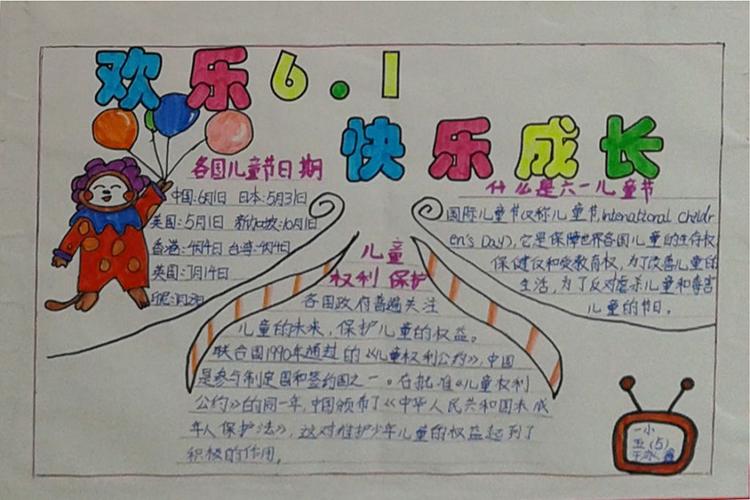 欢乐6.1
快乐成长
各国儿童节日期
中国:6月1日 日本:5月31日
英国:5月1日 新加坡:10月1日
香港:4月4日 台湾:4月4日
英国:7月14日
什么是六一儿童节
国际儿童节(又称儿童节,International childr
en's Day),它是保障世界各国儿童的生存权
保健仅和受教育权,为了改善儿童的
生活,为了反对虐杀儿童和毒害
儿童的节日。
儿童
权利保护
各国政府普遍关注
儿童的未来,保护儿童的权益。
联合国1990年通过的《儿童权利公约》,中国
是参与制定国和签约国之一。在批准《儿童权利
公约》的同一年,中国颁布了《中华人民共和国未成
年人保护法》,这对维护少年儿童的权益起到了
积极的作用。
一小
五(5)